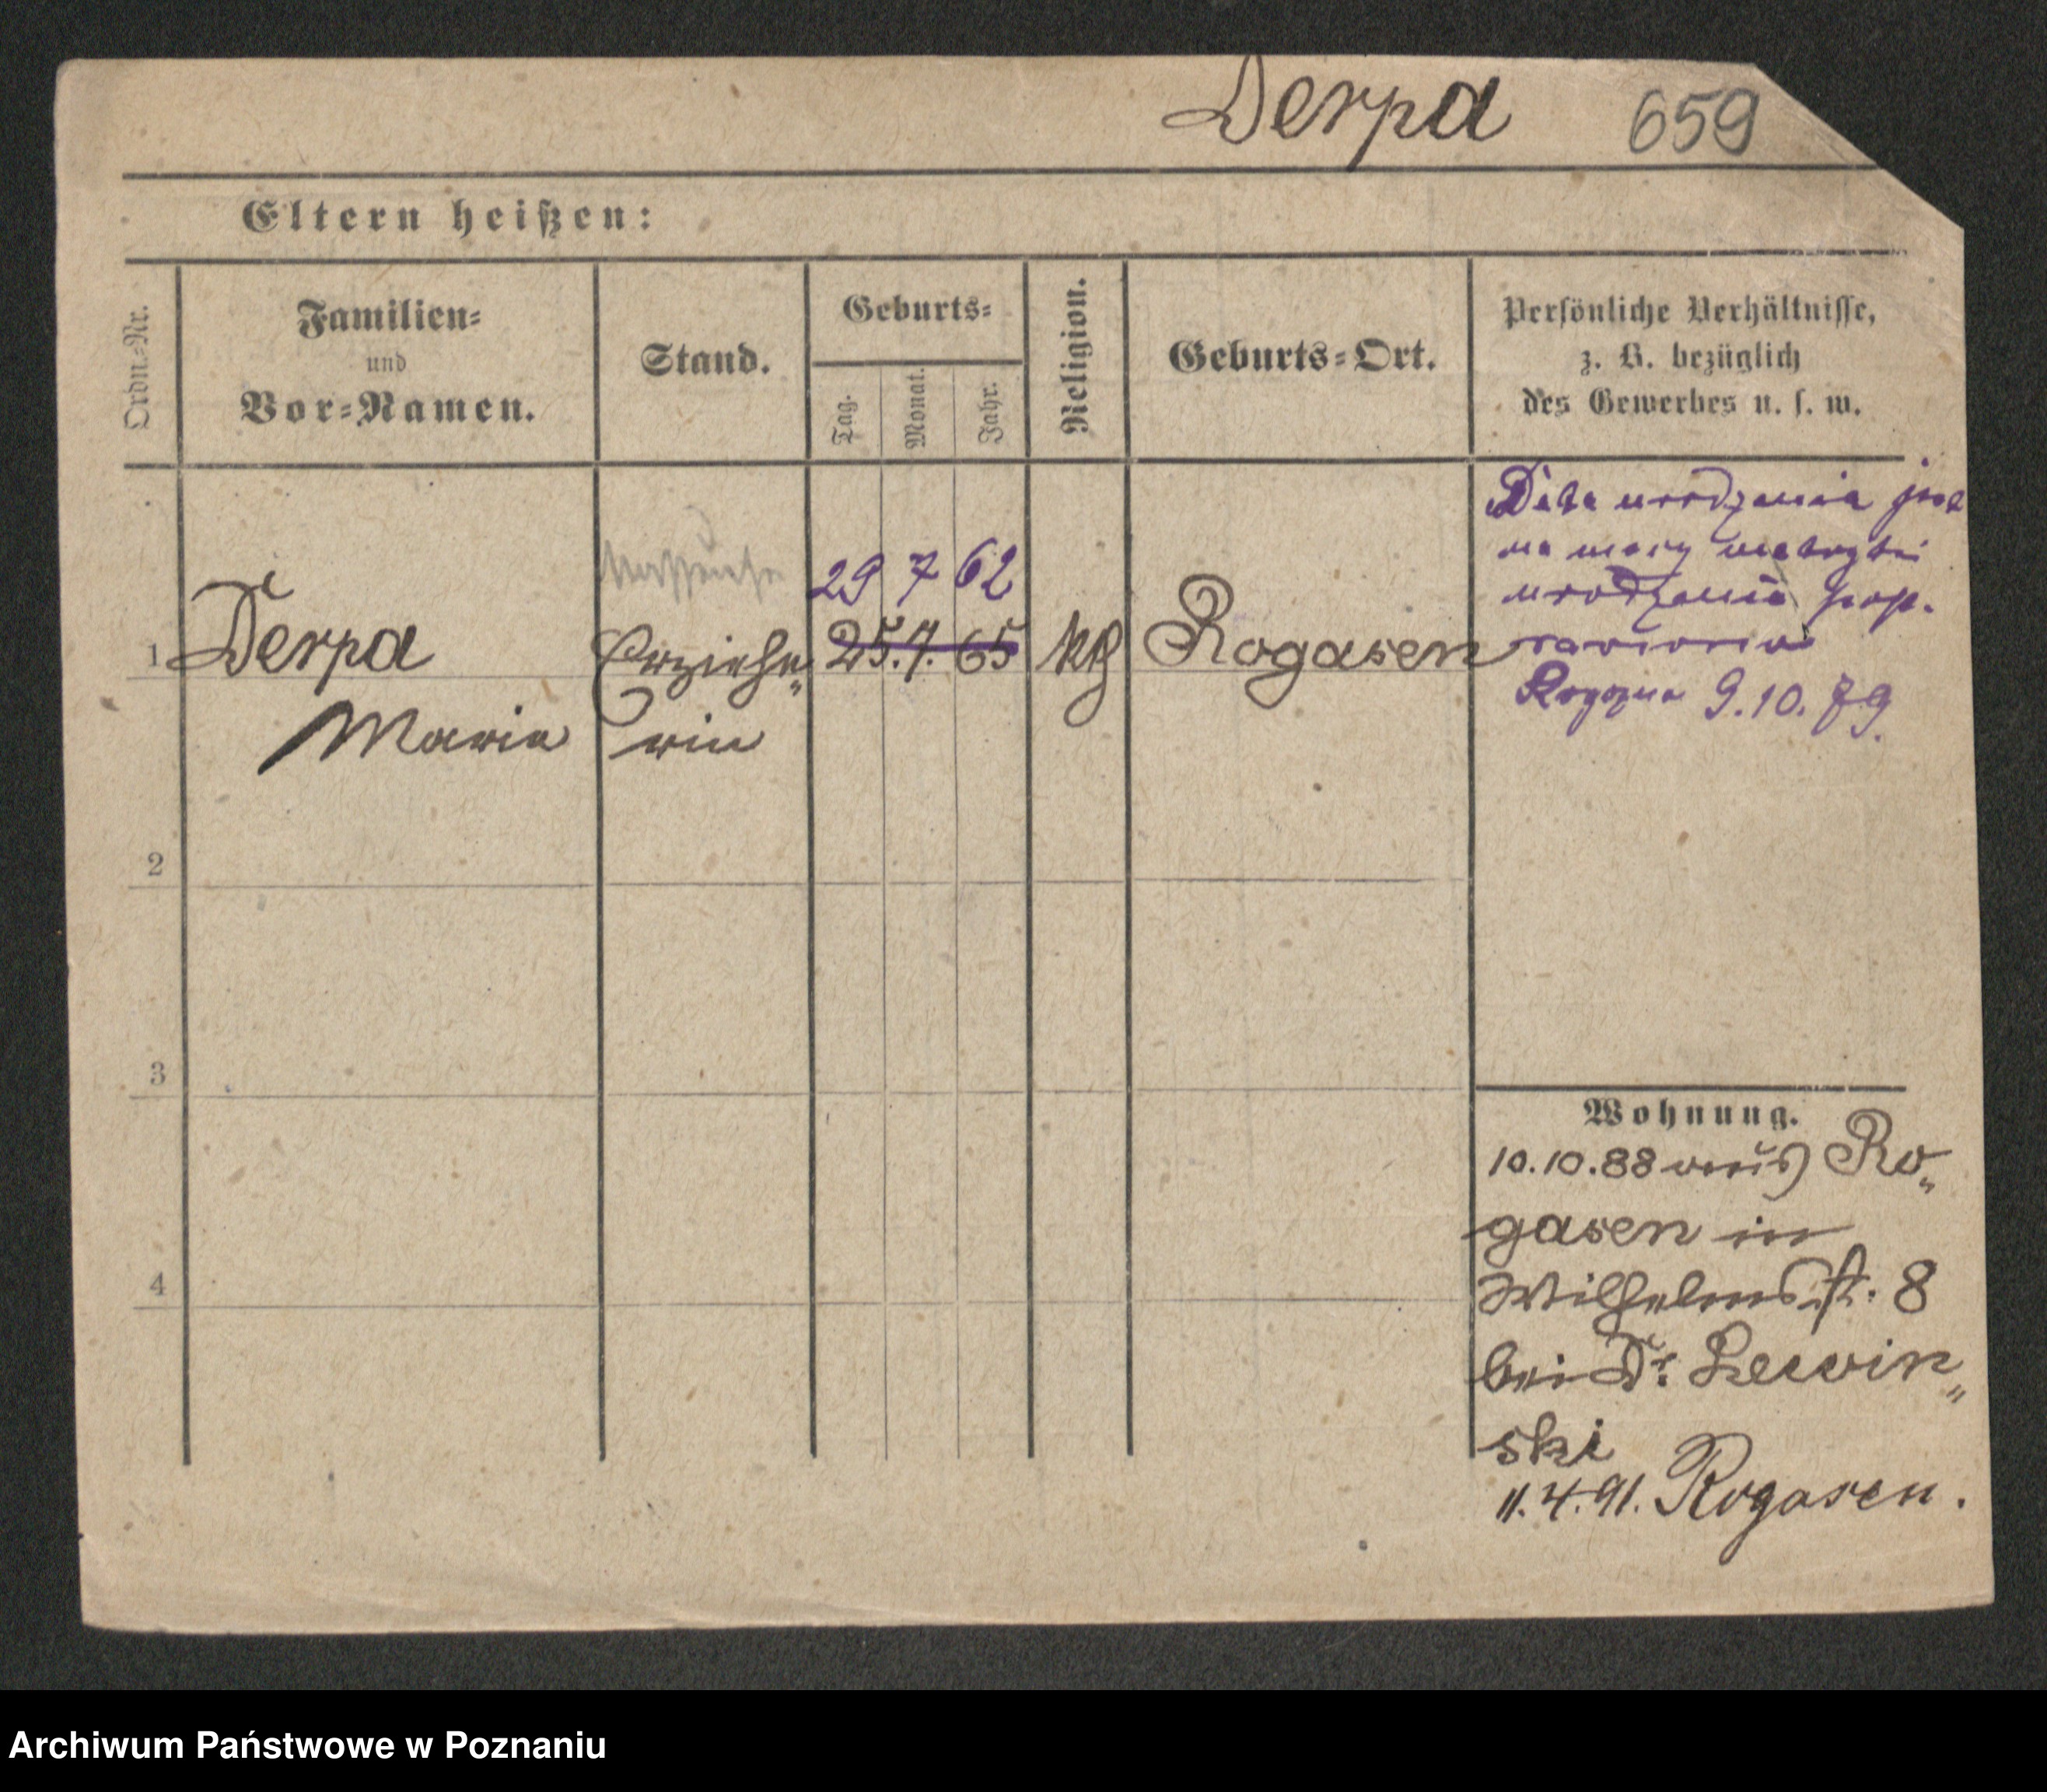 Derpa 659
Eltern heißen:
Ordn-Nr.
Familien-
und
Vor-Namen.
Stand.
Geburts-
Tag.
Monat.
Jahr.
Religion.
Geburts-Ort.
Persönliche Verhältnisse,
z. B. bezüglich
des Gewerbes u. s. w.
29 7 62
1 Derpa Erziehe„ 25. 7. 65 kth Rogasen
Maria rin
Data urodzenia jest
na mocy metryki
urodzenia
Rogozna 9.10.79.
2
3
4
Wohnung.
10.10.88 aus Ro„
gasen in
Wilhelmsst. 8
bei Dr. Lewin„
ski
11.4.91. Rogasen.
Archiwum Państwowe w Poznaniu